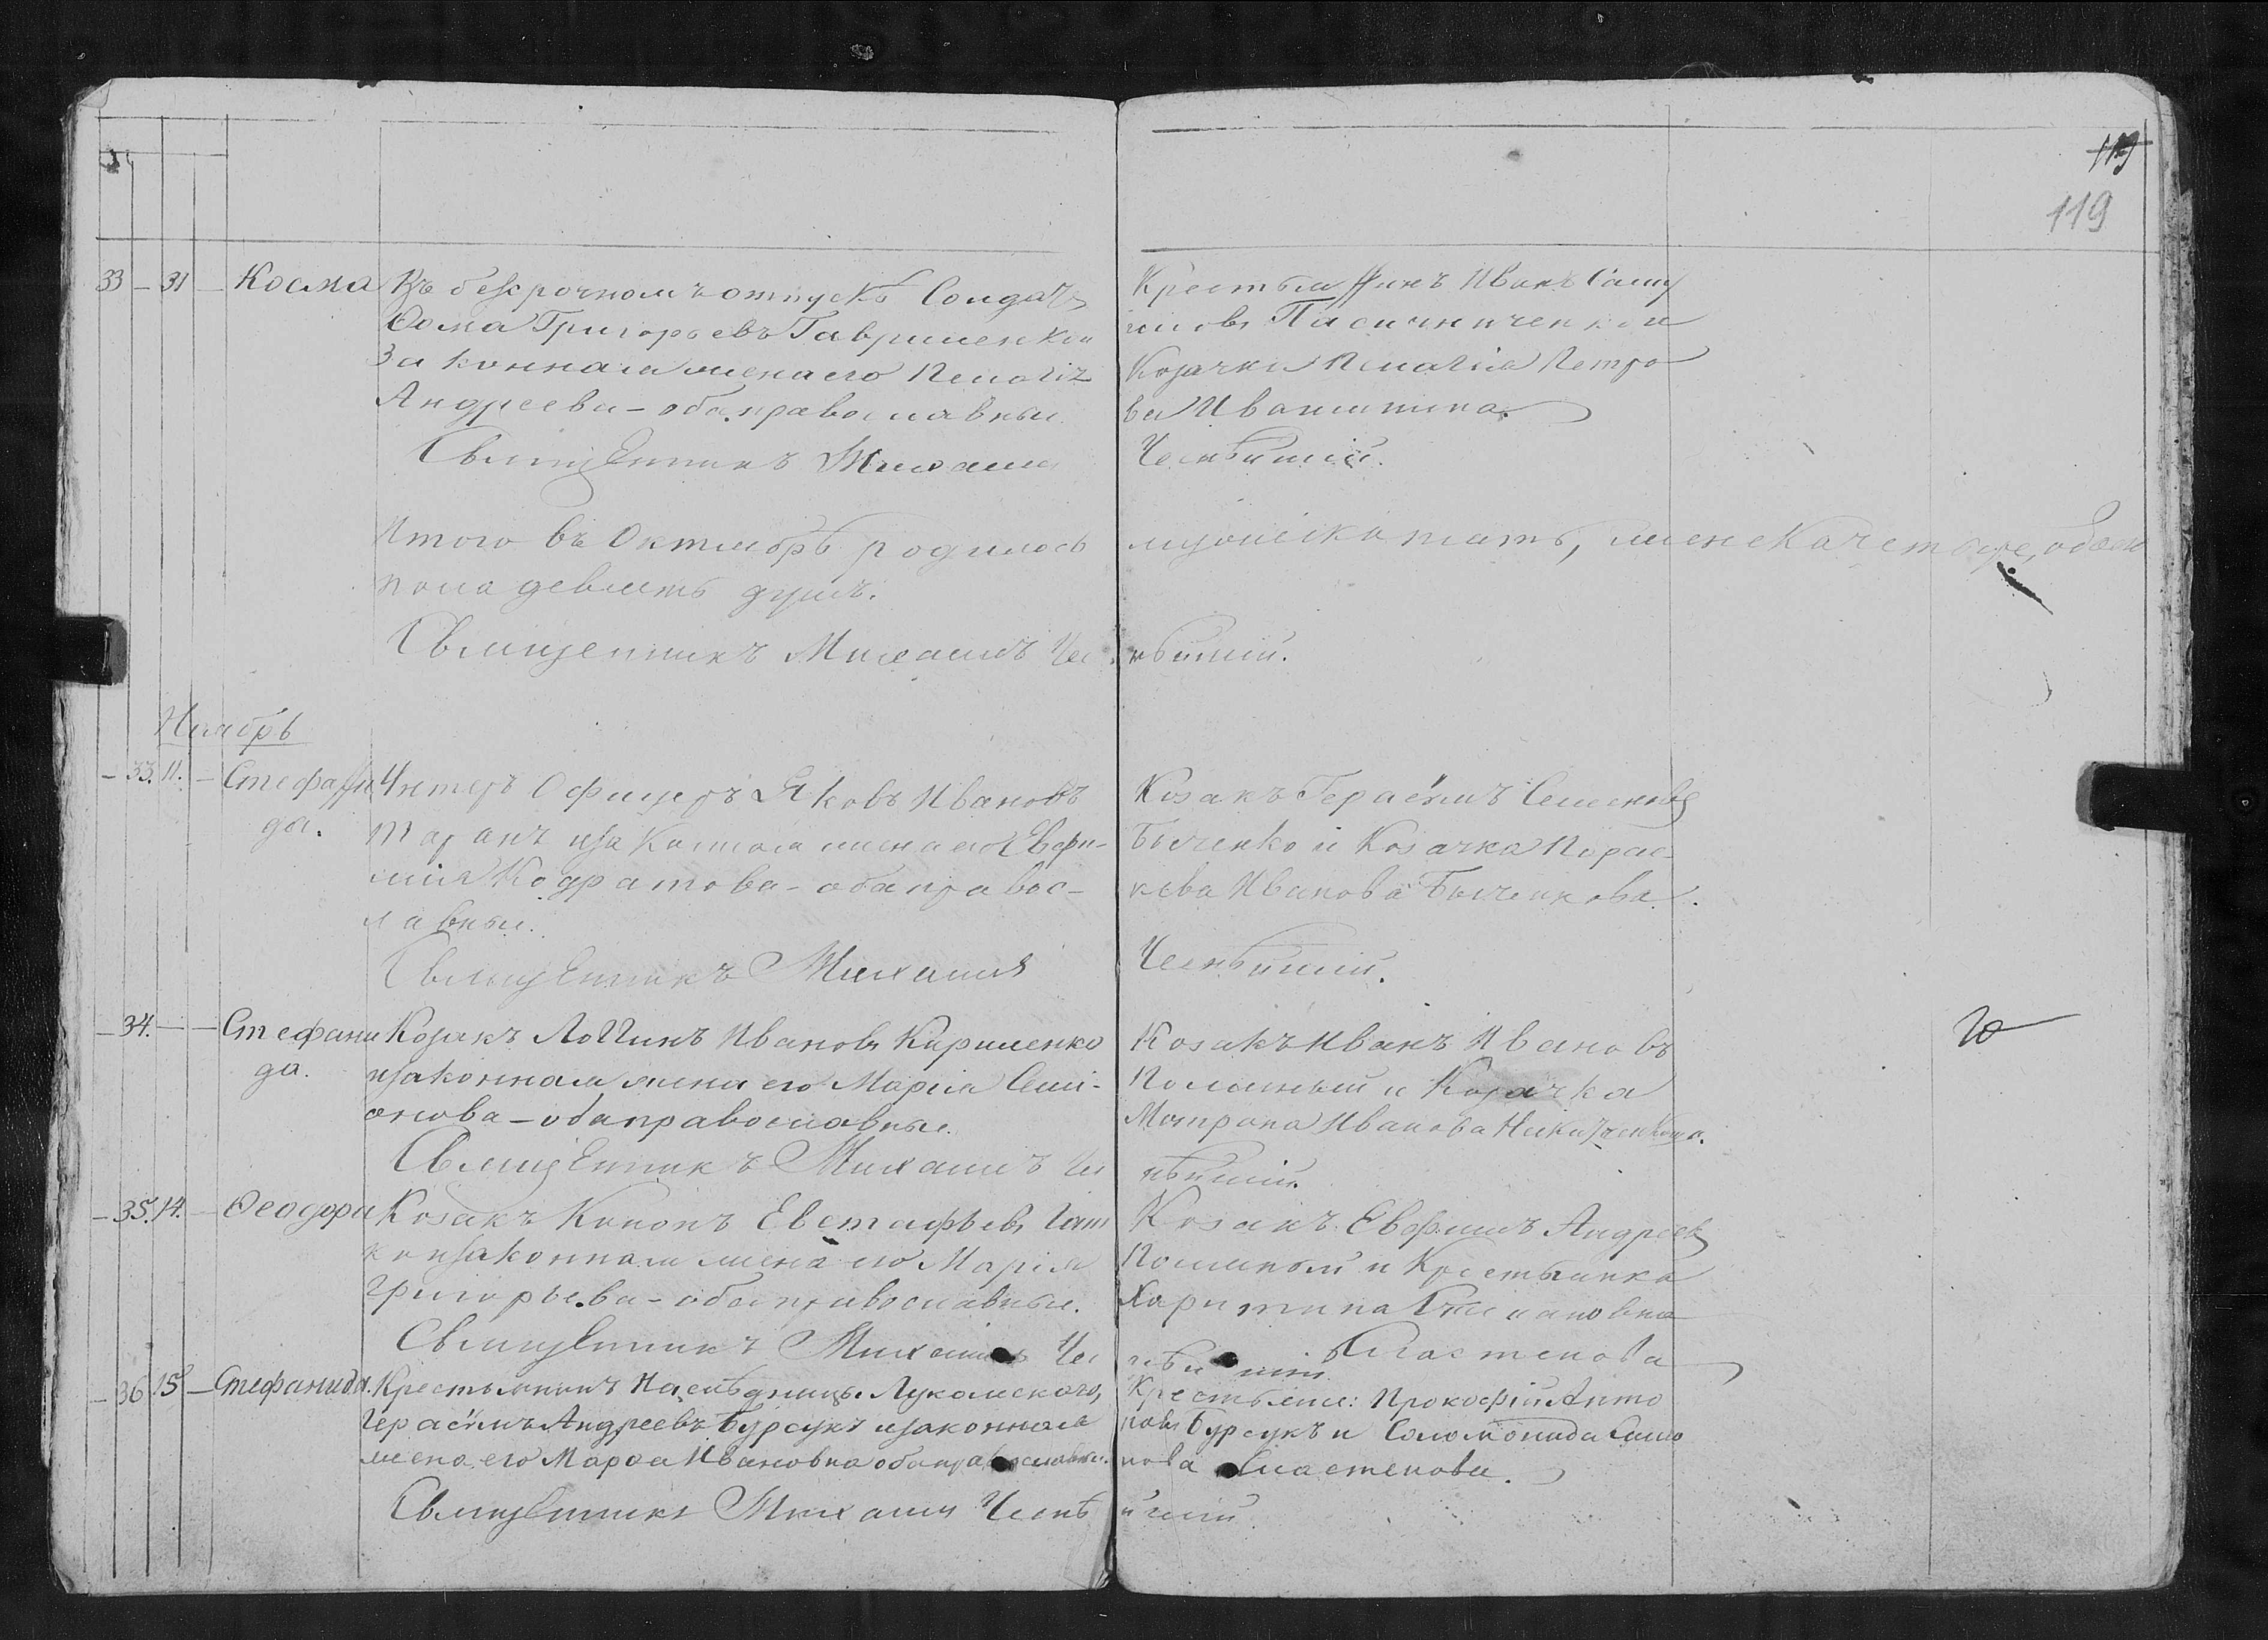 119
119
33 – 31 – Косма Въ безсрочномъ отпускѣ Солдатъ
Ѳома Григорьевъ Гавриленко и
Законная жена его Пелагія
Андреева – оба православные.
Священникъ Михаилъ
Крестьянинъ Иванъ
Пасичниченко и
Козачка Пелагія Петро
ва
Итого въ Октябрѣ родилось
пола девять душъ.
Священникъ Михаилъ
мужеска пять, женска четыре, обоего
Ноябрь
– 33. 11. – Стефани Унтеръ Офицеръ Яковъ Ивановъ
да. Таранъ изаконная жена его Евфи-
мія Кодратова – оба правос-
лавные.
Священникъ Михаилъ
Козакъ Герасимъ Семеновъ
Быченко и Козачка Парас-
кева Иванова Быченкова.
– 34. – – Стефани Козакъ Логгинъ Ивановъ Кириленко
да. изаконная жена его Марія Сими-
онова – оба православные.
Священникъ Михаилъ
Козакъ Иванъ Ивановъ
и Козачка
Матрона Иванова
– 35. 14. – Ѳеодоръ Козакъ Кононъ Евстафьевъ
ко изаконная жена его Марія
Григорьева – оба православные.
Священникъ Михаилъ
Козакъ Евфимъ Андреевъ
и Крестьянка
Харитина
Сластенова
– 36 15 – Стефанида. Крестьянинъ Наслѣдницы Лукомского,
Герасимъ Андреевъ Бурсукъ изаконная
жена его Марѳа Ивановна оба православные.
Священникъ Михаилъ
Крестьяне: Прокофій Анто
новъ Бурсукъ и Соломонида
нова Сластенова.